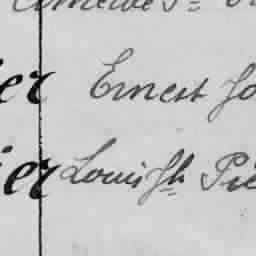 er Ernest Jo
ier Louis Jh Pie